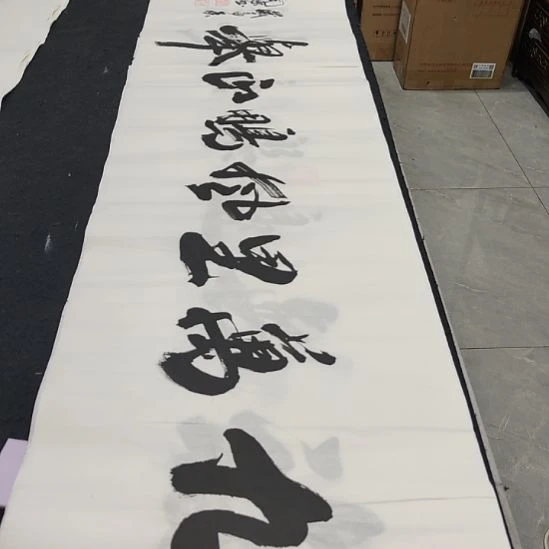 九萬里風鵬正舉